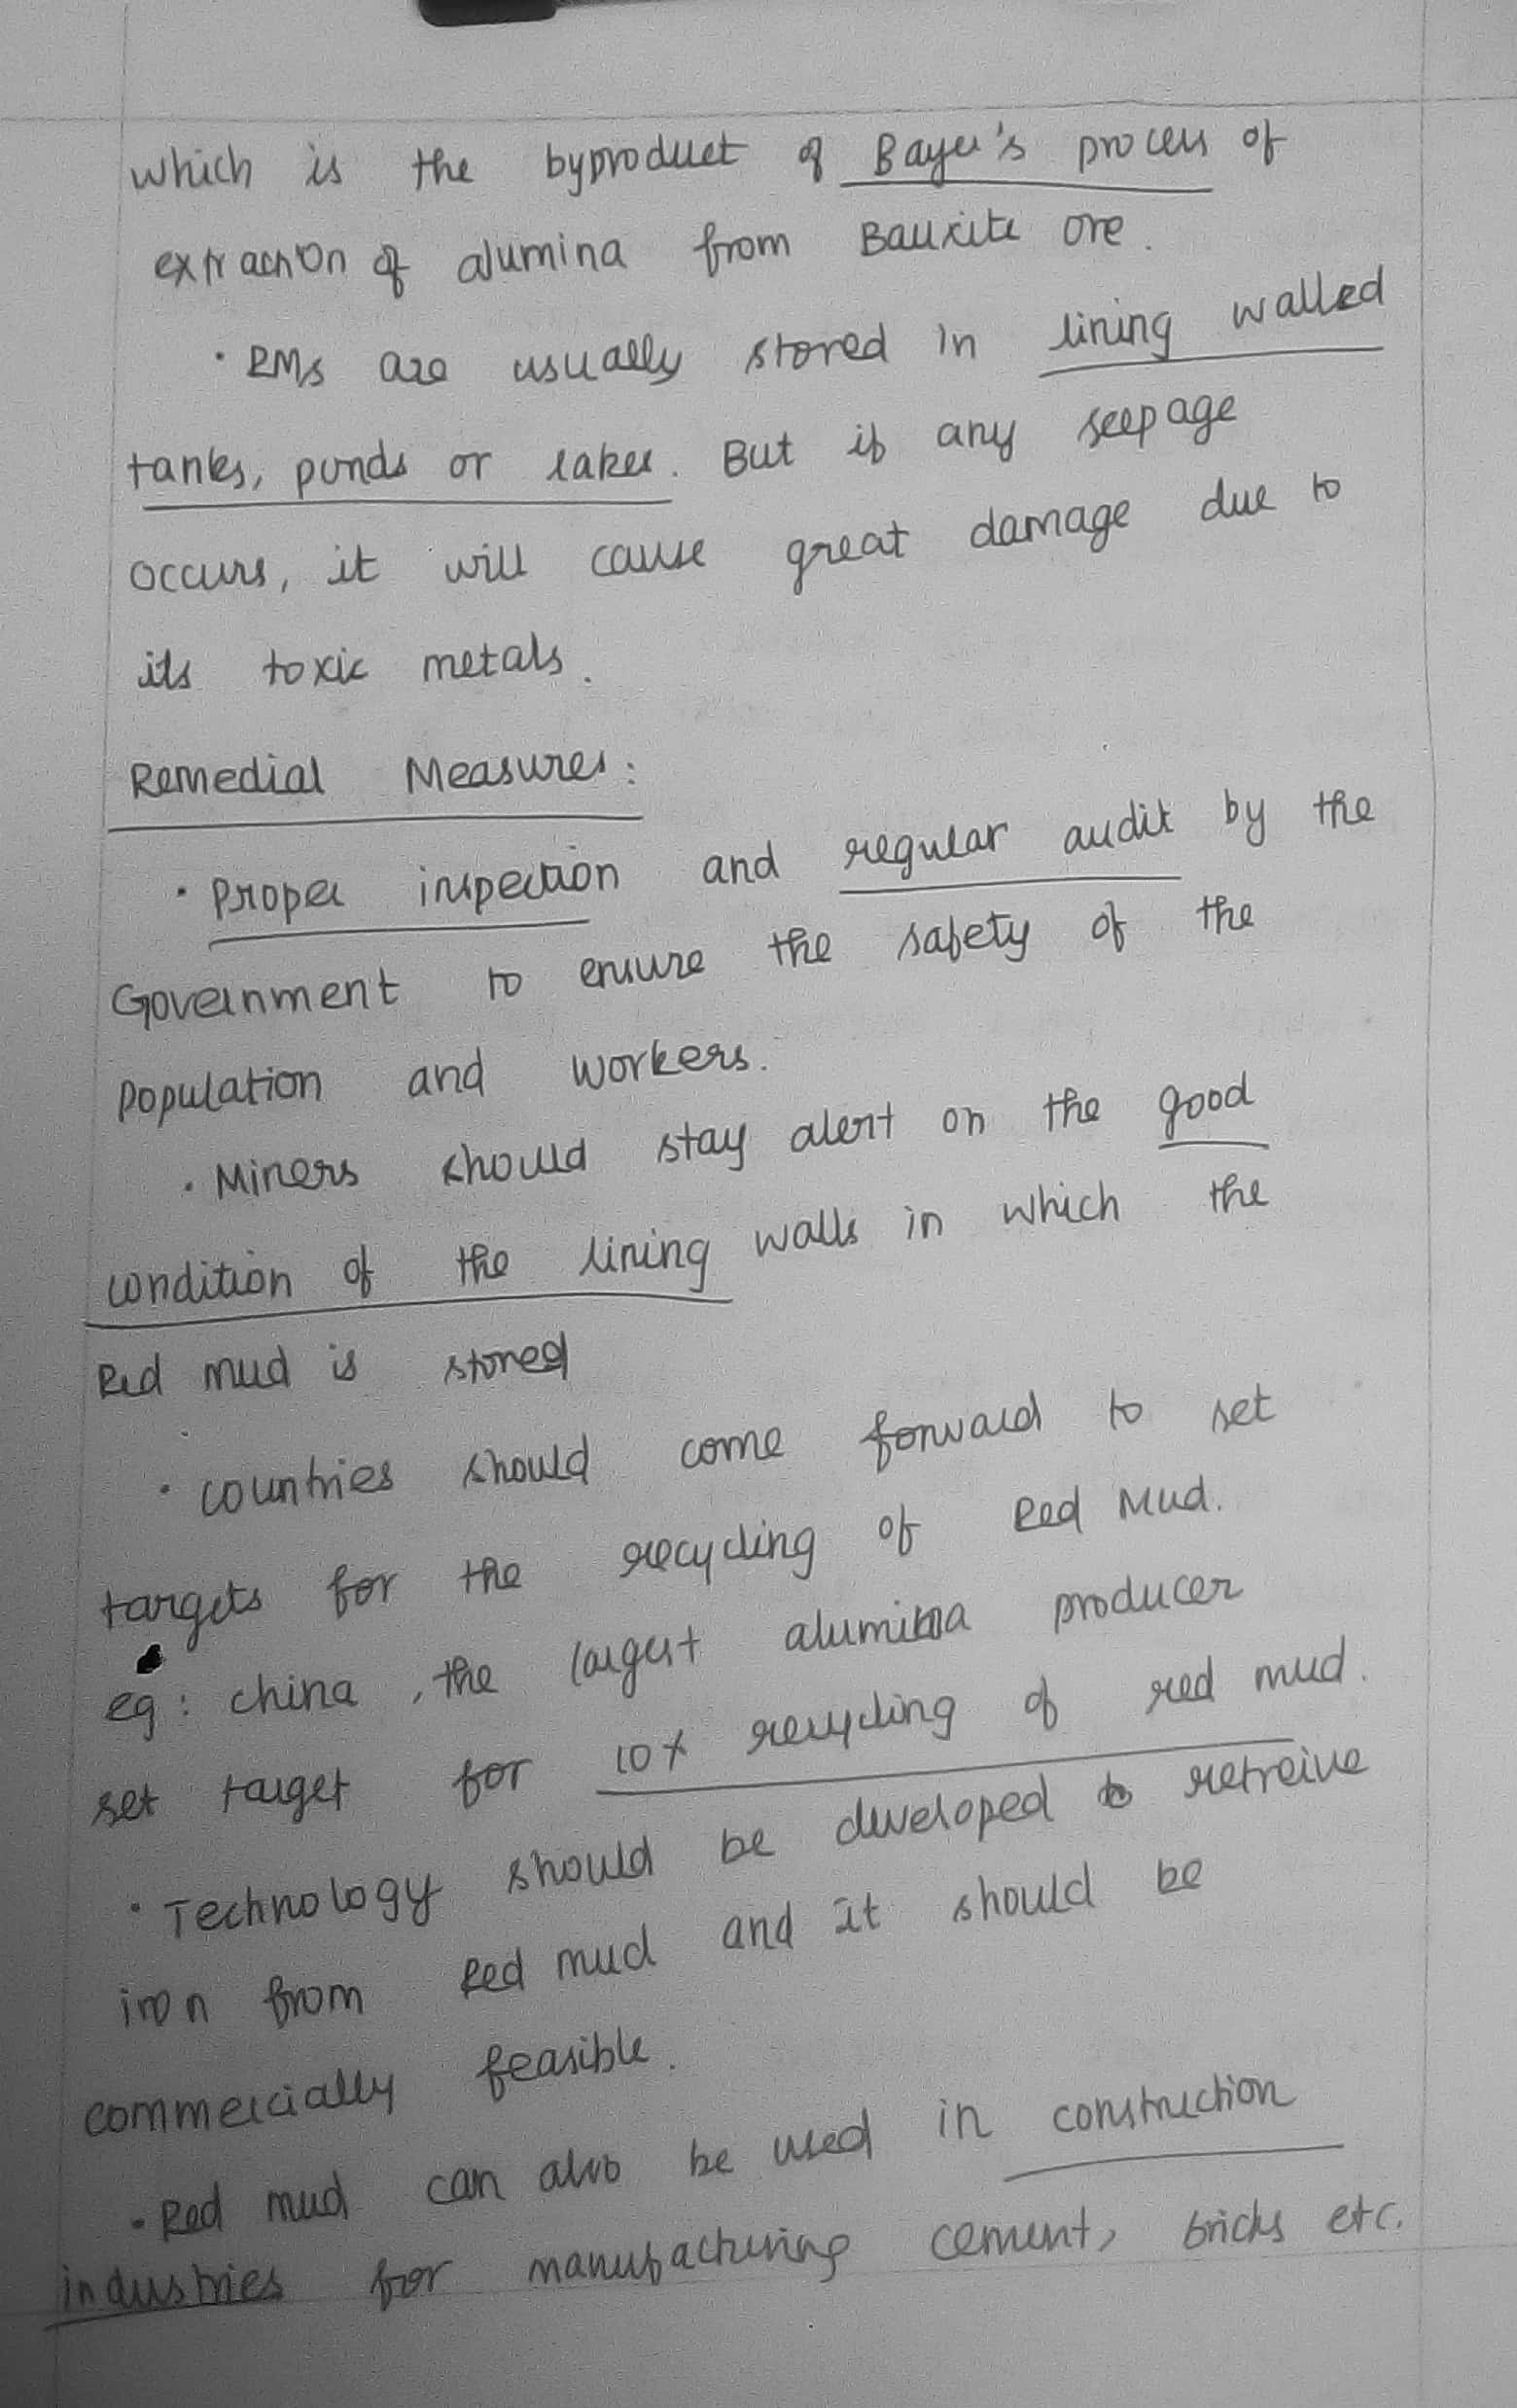 which is the byproduct of Bayer's process of
extraction of alumina from Bauxite ore.
· RMs are usually stored in lining walled
tanks, ponds or lakes. But if any seepage
occurs, it will cause great damage due to
its toxic metals.
Remedial Measures:
· Proper inspection and regular audit by the
Government to ensure the safety of the
population and workers.
· Miners should stay alert on the good
condition of the lining walls in which the
Red mud is stored
· countries should come forward to set
targets for the recycling of Red Mud.
eg: china, the largest alumina producer
set target for 10% recycling of red mud.
· Technology should be developed to retreive
iron from Red mud and it should be
commercially feasible.
· Red mud can also be used in construction
industries for manufacturing cement, bricks etc.